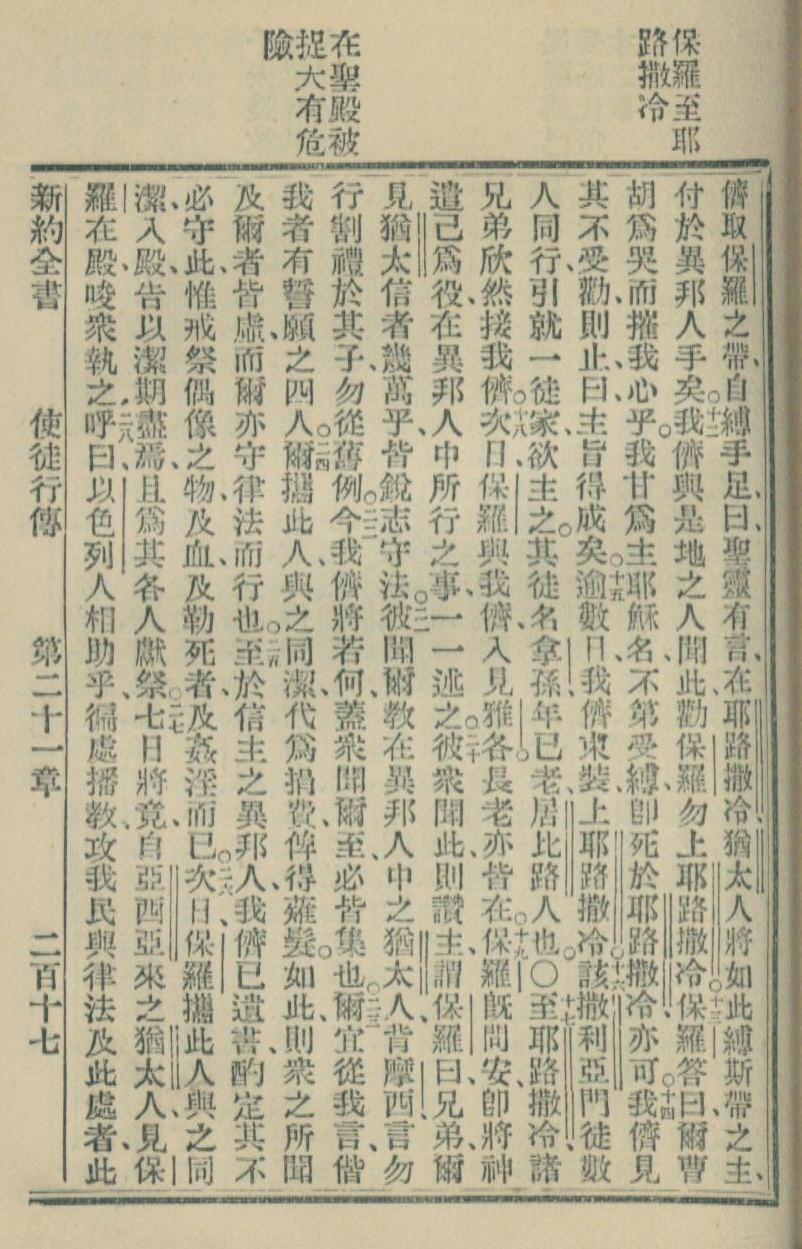 保羅至耶
路撒冷
在聖殿被
捉大有危
險
儕取保羅之帶、自縛手足、曰、聖靈有言、在耶路撒冷猶太人將如此縛斯帶之主、
付於異邦人手矣。十二我儕與是地之人聞此、勸保羅勿上耶路撒冷。十三保羅答曰、爾曹
胡爲哭而摧我心乎。我甘爲主耶穌名、不第受縛、卽死於耶路撒冷亦可。十四我儕見
其不受勸、則止、曰、主旨得成矣。十五逾數日、我儕束裝、上耶路撒冷。十六該撒利亞門徒數
人同行、引就一徒家、欲主之。其徒名拿孫、年已老、居比路人也。〇十七至耶路撒冷、諸
兄弟欣然接我儕。十八次日、保羅與我儕、入見雅各。長老亦皆在。十九保羅旣問安、卽將神
遣己爲役、在異邦人中所行之事、一一述之。二十彼衆聞此、則讚主、謂保羅曰、兄弟、爾
見猶太信者幾萬乎、皆銳志守法。二一彼聞爾教在異邦人中之猶太人、背摩西、言勿
行割禮於其子、勿從舊例。二二今我儕將若何、蓋衆聞爾至、必皆集也。二三爾宜從我言、偕
我者有誓願之四人。二四爾攜此人、與之同潔、代爲捐費、俾得薙髮。如此、則衆之所聞
及爾者皆虛、而爾亦守律法而行也。二五至於信主之異邦人、我儕已遺書、酌定其不
必守此、惟戒祭偶像之物、及血、及勒死者、及姦淫而已。二六次日、保羅攜此人、與之同
潔、入殿、告以潔期盡焉、且爲其各人獻祭。二七七日將竟、自亞西亞來之猶太人、見保
羅在殿、唆衆執之、二八呼曰、以色列人相助乎、徧處播教、攻我民與律法及此處者、此
新約全書　使徒行傳　第二十一章　二百十七